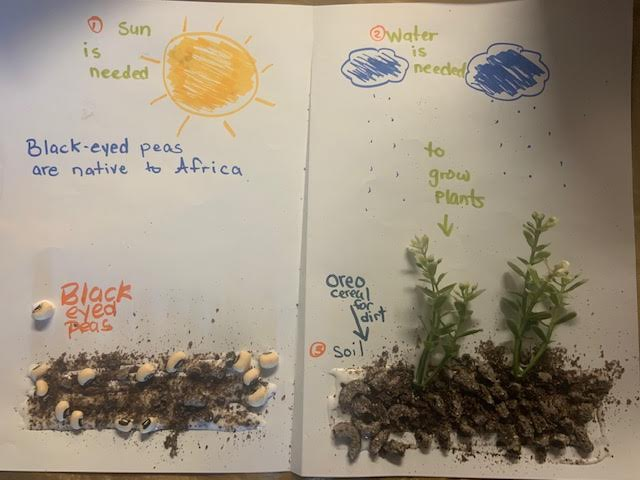 ① Sun
is
needed
Black-eyed peas
are native to Africa
Black
eyed
peas
② Water
is
needed
to
grow
plants
Oreo
cereal
for
dirt
③ Soil